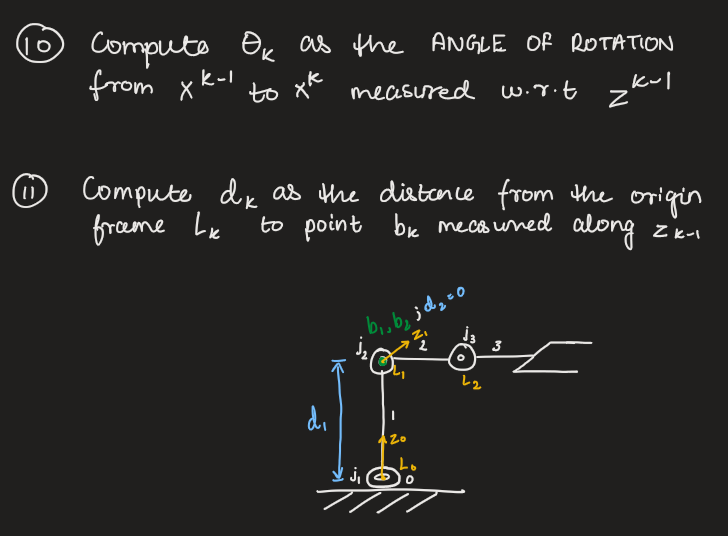 10 Compute θk as the ANGLE OF ROTATION
from x^k-1 to x^k measured w.r.t z^k-1
11 Compute dk as the distance from the origin
frame Lk to point bk measured along z k-1
b1, b2 ; d2=0
j2
z1
2
j3
3
L1
L2
d1
1
z0
j1
L0
0